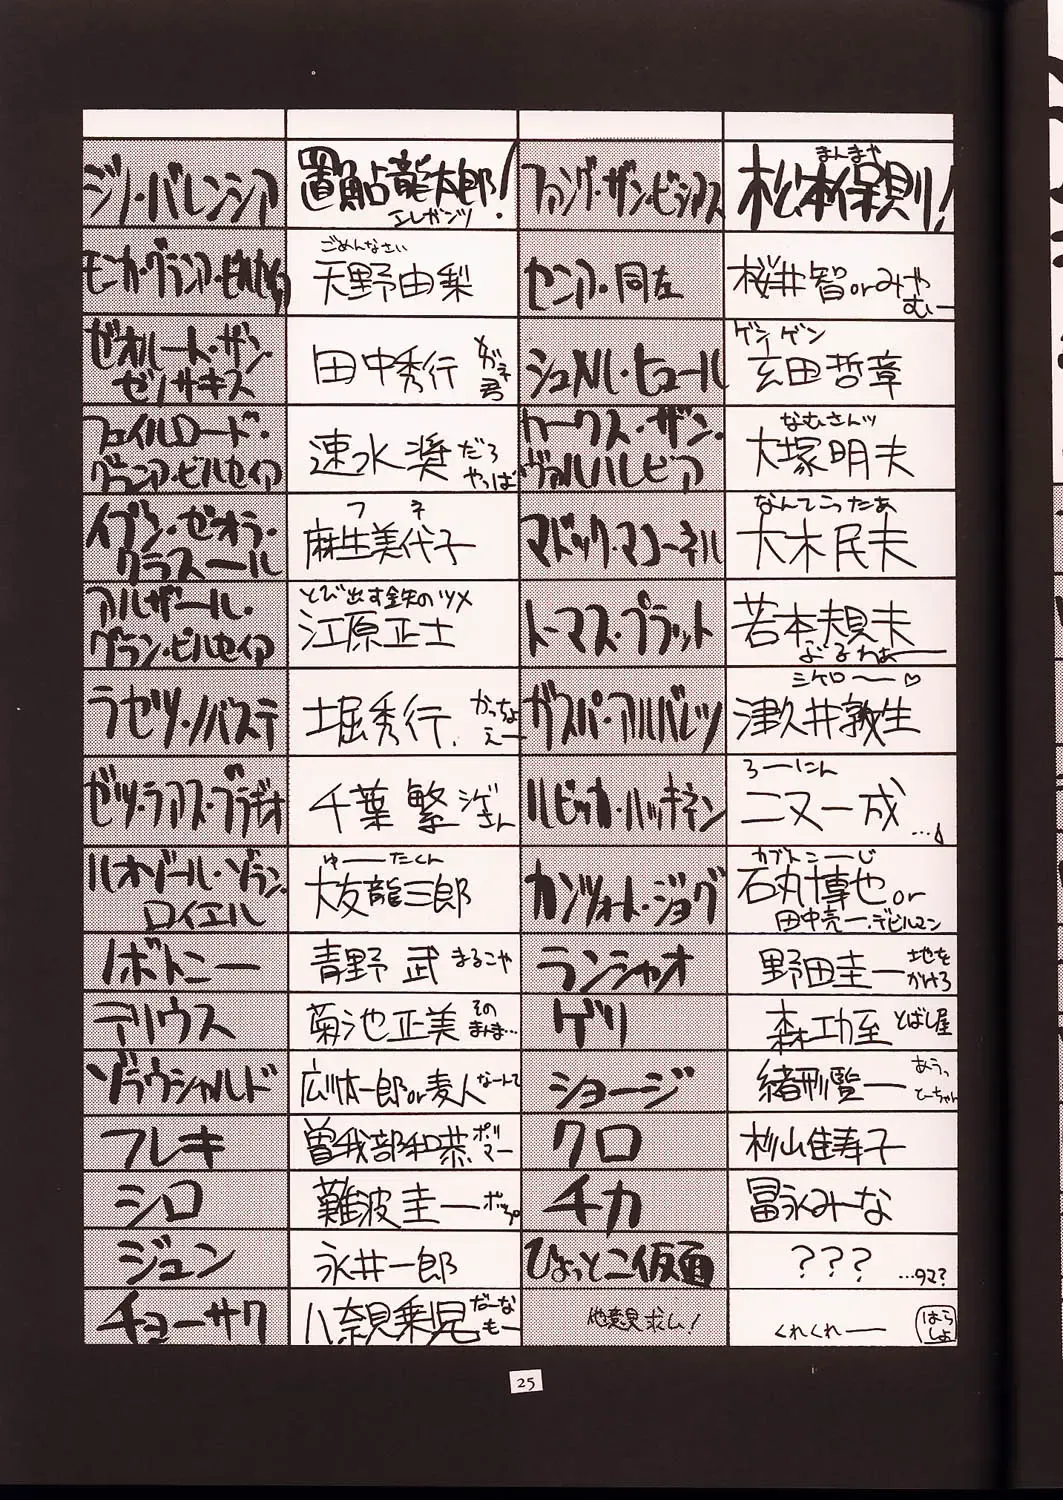 ジノ・バレンシア
置鮎龍太郎!
エレガンツ
ファング・ザン・ビシアス
まんまや
松本保則!
モニカ・グランア・ビルセイア
ごめんなさい
天野由梨
センア・同左
桜井智orみや
むー
ゼオルート・ザン・
ゼノサキス
田中秀行
めがネ君
シュメル・ヒュール
ゲンゲン
玄田哲章
フェイルロード・
グランア・ビルセイア
速水奨だろ
やっぱ
カークス・ザン・
ヴァルハレビア
なむさんッ
大塚明夫
イブン・ゼオラ・
クラスール
フネ
麻生美代子
マドック・マコーネル
なんてこったあ
大木民夫
アルザール・
グラン・ビルセイア
とび出す鉄のツメ
江原正士
トーマス・プラット
若本規夫
ぶるわぁー
ラセツ・ノバステ
土堀秀行.
かっちょ
えー
ガスパ・アルバレツ
ミケロ〜♡
津久井教生
ゼツ・ラアス・ブラギオ
千葉繁
シゲさん
ルビッカ・ハッキネン
ろーにん
二又一成
…♪
ハオゾール・ゾラン・
ロイエル
ゆーたくん
大友龍三郎
カンツォート・ジョグ
カブトこーじ
石丸博也or
田中亮一・デビルマン
ノボトニー
青野武 まるこや
ランシャオ
野田圭一
地を
かけろ
テリウス
菊池正美
その
まんま…
ゲリ
森功至 とばし屋
ゾラウシャルド
広川太一郎or麦人 なーんて
ショージ
緒形賢一
あうっ
とーちゃん
フレキ
曽我部和恭
ポリマー
クロ
杉山佳寿子
シロ
難波圭一 ポップ
チカ
冨永みーな
ジュン
永井一郎
ひょっとこ仮面
???
…タマ?
チョーサク
八奈見乗児
だーな
もー
他意見求ム!
くれくれー
はら
しょ
25